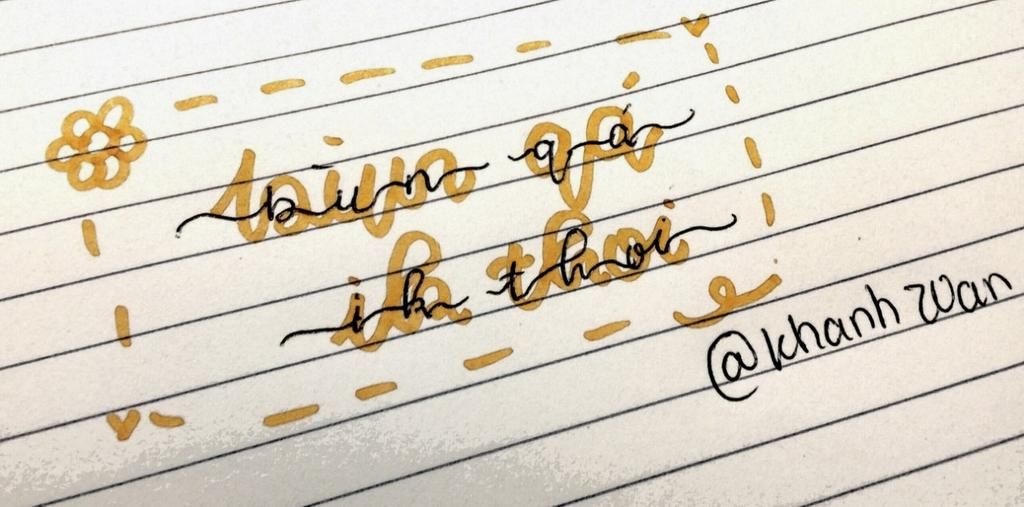 bùn qá
ik thoi
@khanh wan